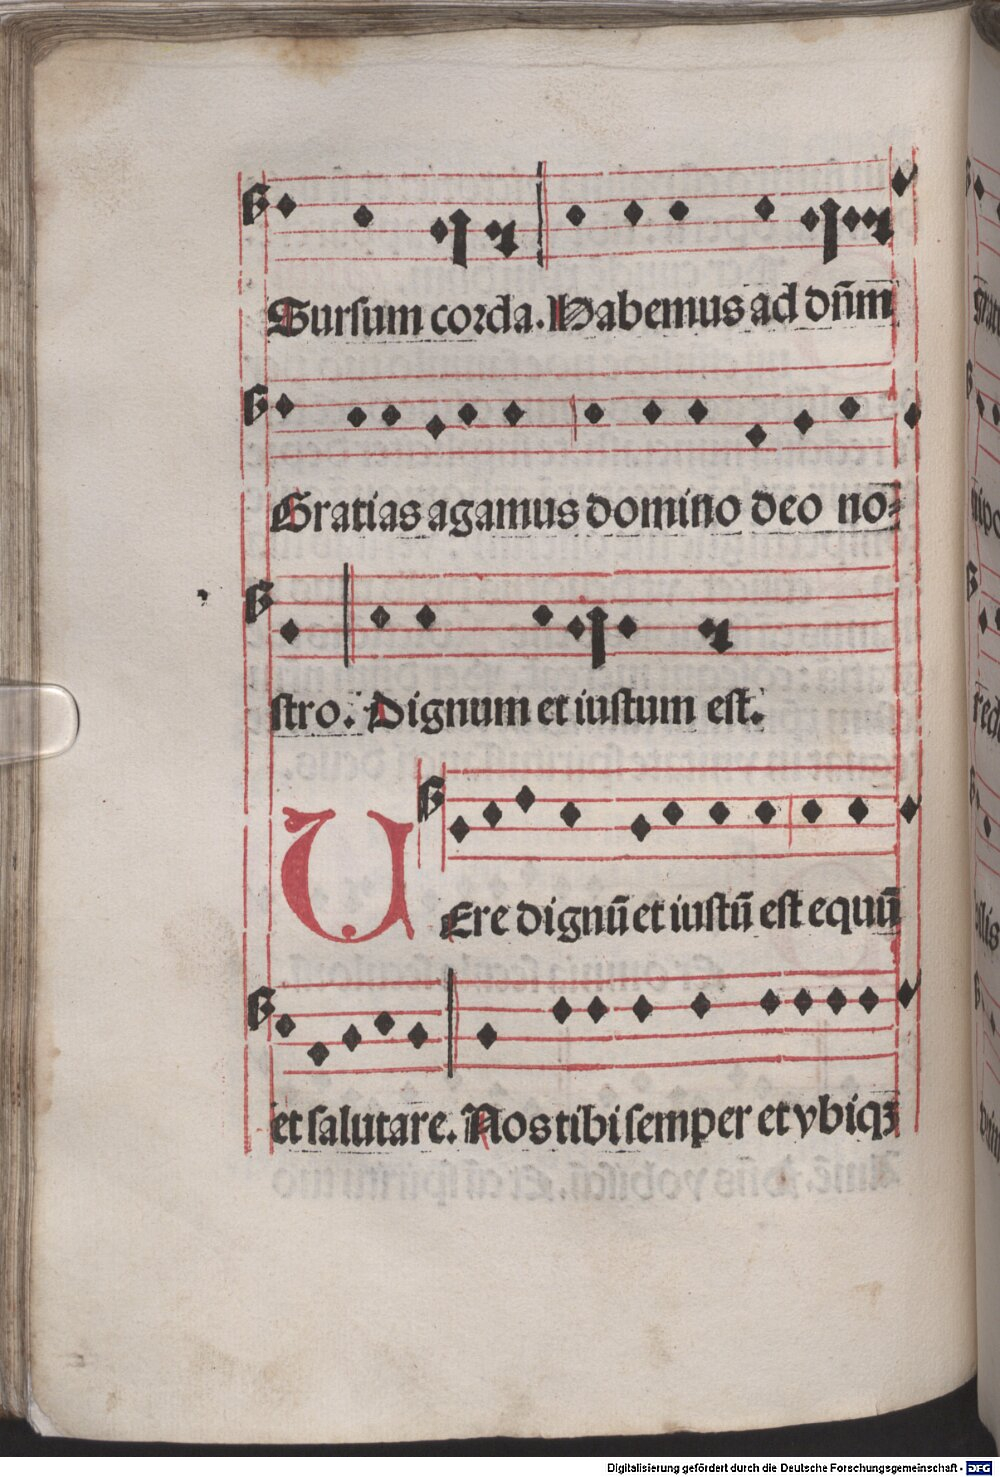 Sursum corda. Habemus ad dn̄m
Gratias agamus domino deo no⸗
stro. Dignum et iustum est.
VEre dignū et iustū est equū
et salutare. Nos tibi semper et vbiqꝫ
Digitalisierung gefördert durch die Deutsche Forschungsgemeinschaft - DFG